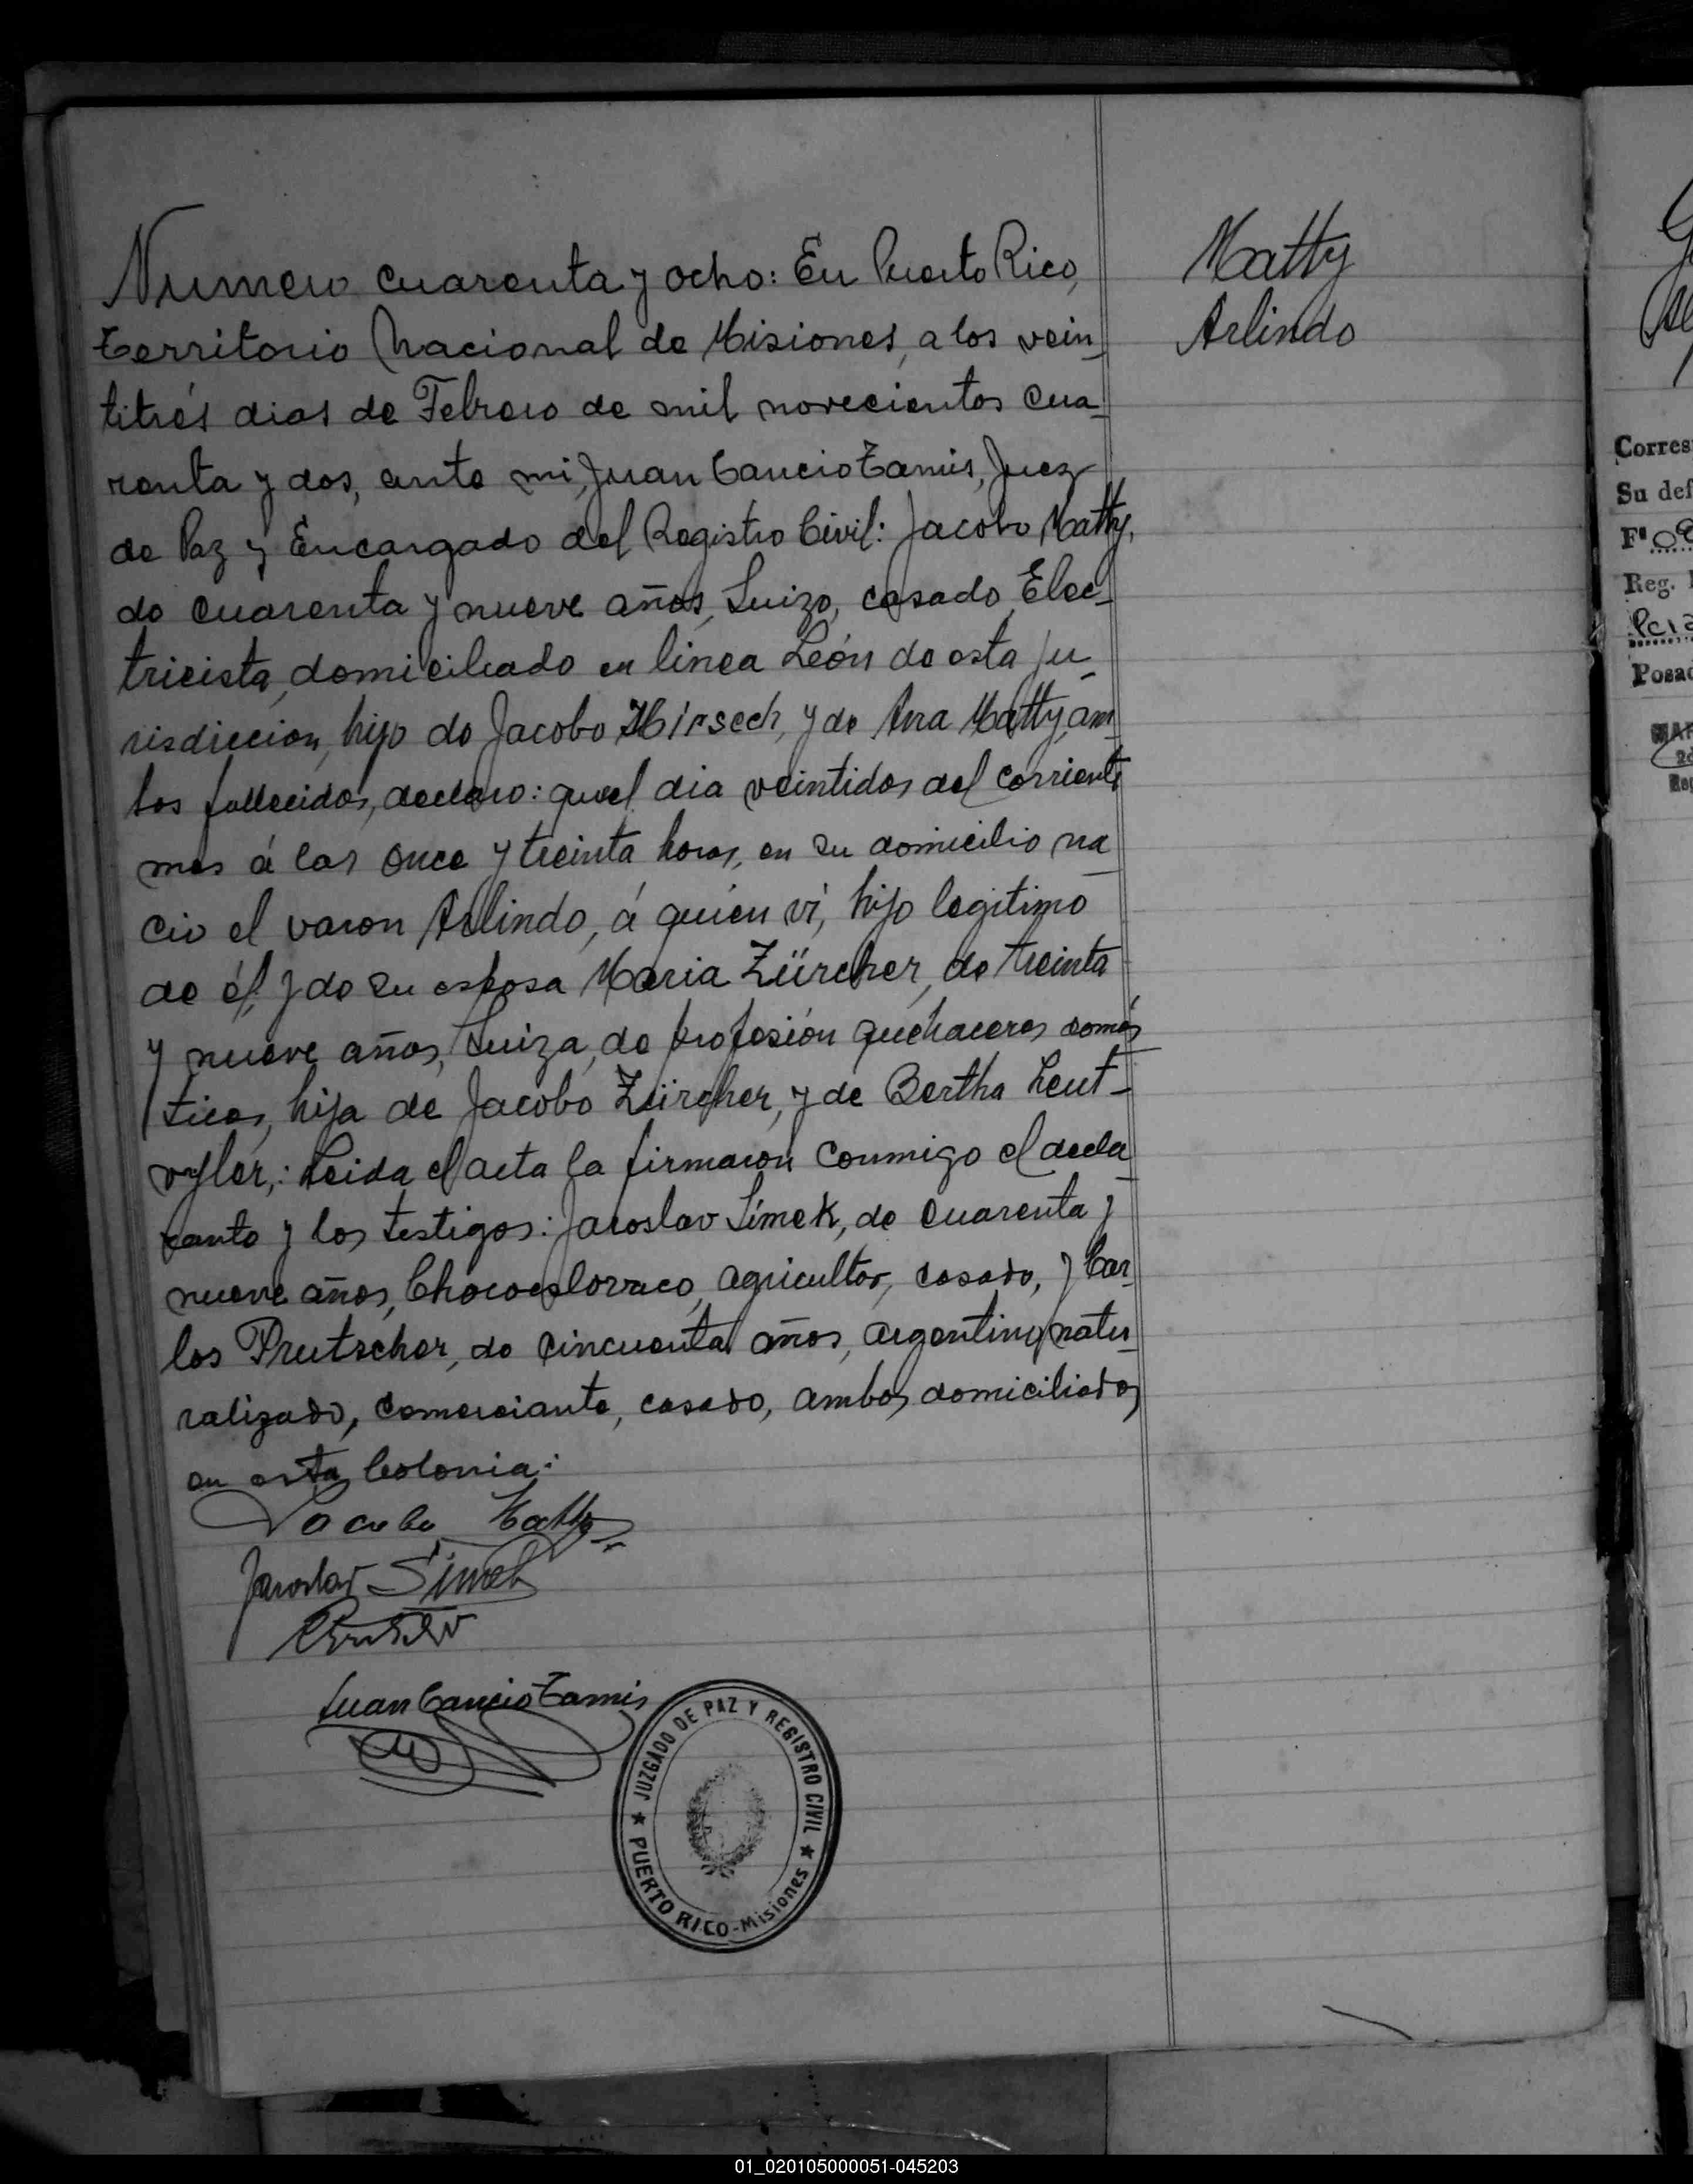 Numero cuarenta y ocho: En Puerto Rico,
territorio Nacional de Misiones, a los vein_
titrés dias de Febrero de mil novecientos cua_
renta y dos, ante mi, Juan Cancio Tamis, Juez
de Paz y Encargado del Registro Civil: Jacobo Matty,
de cuarenta y nueve años, Suizo, casado, Elec_
tricista, domiciliado en linea León de esta ju_
risdiccion, hijo de Jacobo Hirsech, y de Ana Matty, am_
bos fallecidos, declaro: que el dia veintidos del corriente
mes á las once y treinta horas, en su domicilio na_
cio el varon Arlindo, á quien vi, hijo legitimo
de él, y de su esposa Maria Zürcher, de treinta
y nueve años, Suiza, de profesión quehaceres domés
ticos, hija de Jacobo Zürcher, y de Bertha Leut_
vyler,: Leida el acta la firmaron conmigo el decla_
rante y los testigos: Jaroslav Simek, de cuarenta y
nueve años, Chocoeslovaco, agricultor, casado, y Car_
los Prutscher, de cincuenta años, argentino, natu_
ralizado, comerciante, casado, ambos domiciliados
en esta Colonia:
Jacobo Matty
Jaroslav Simek
Juan Cancio Tamis
JUZGADO DE PAZ Y REGISTRO CIVIL
PUERTO RICO-Misiones
Matty
Arlindo
Corres
Su def
Fº
Reg.
Posad
01_020105000051-045203